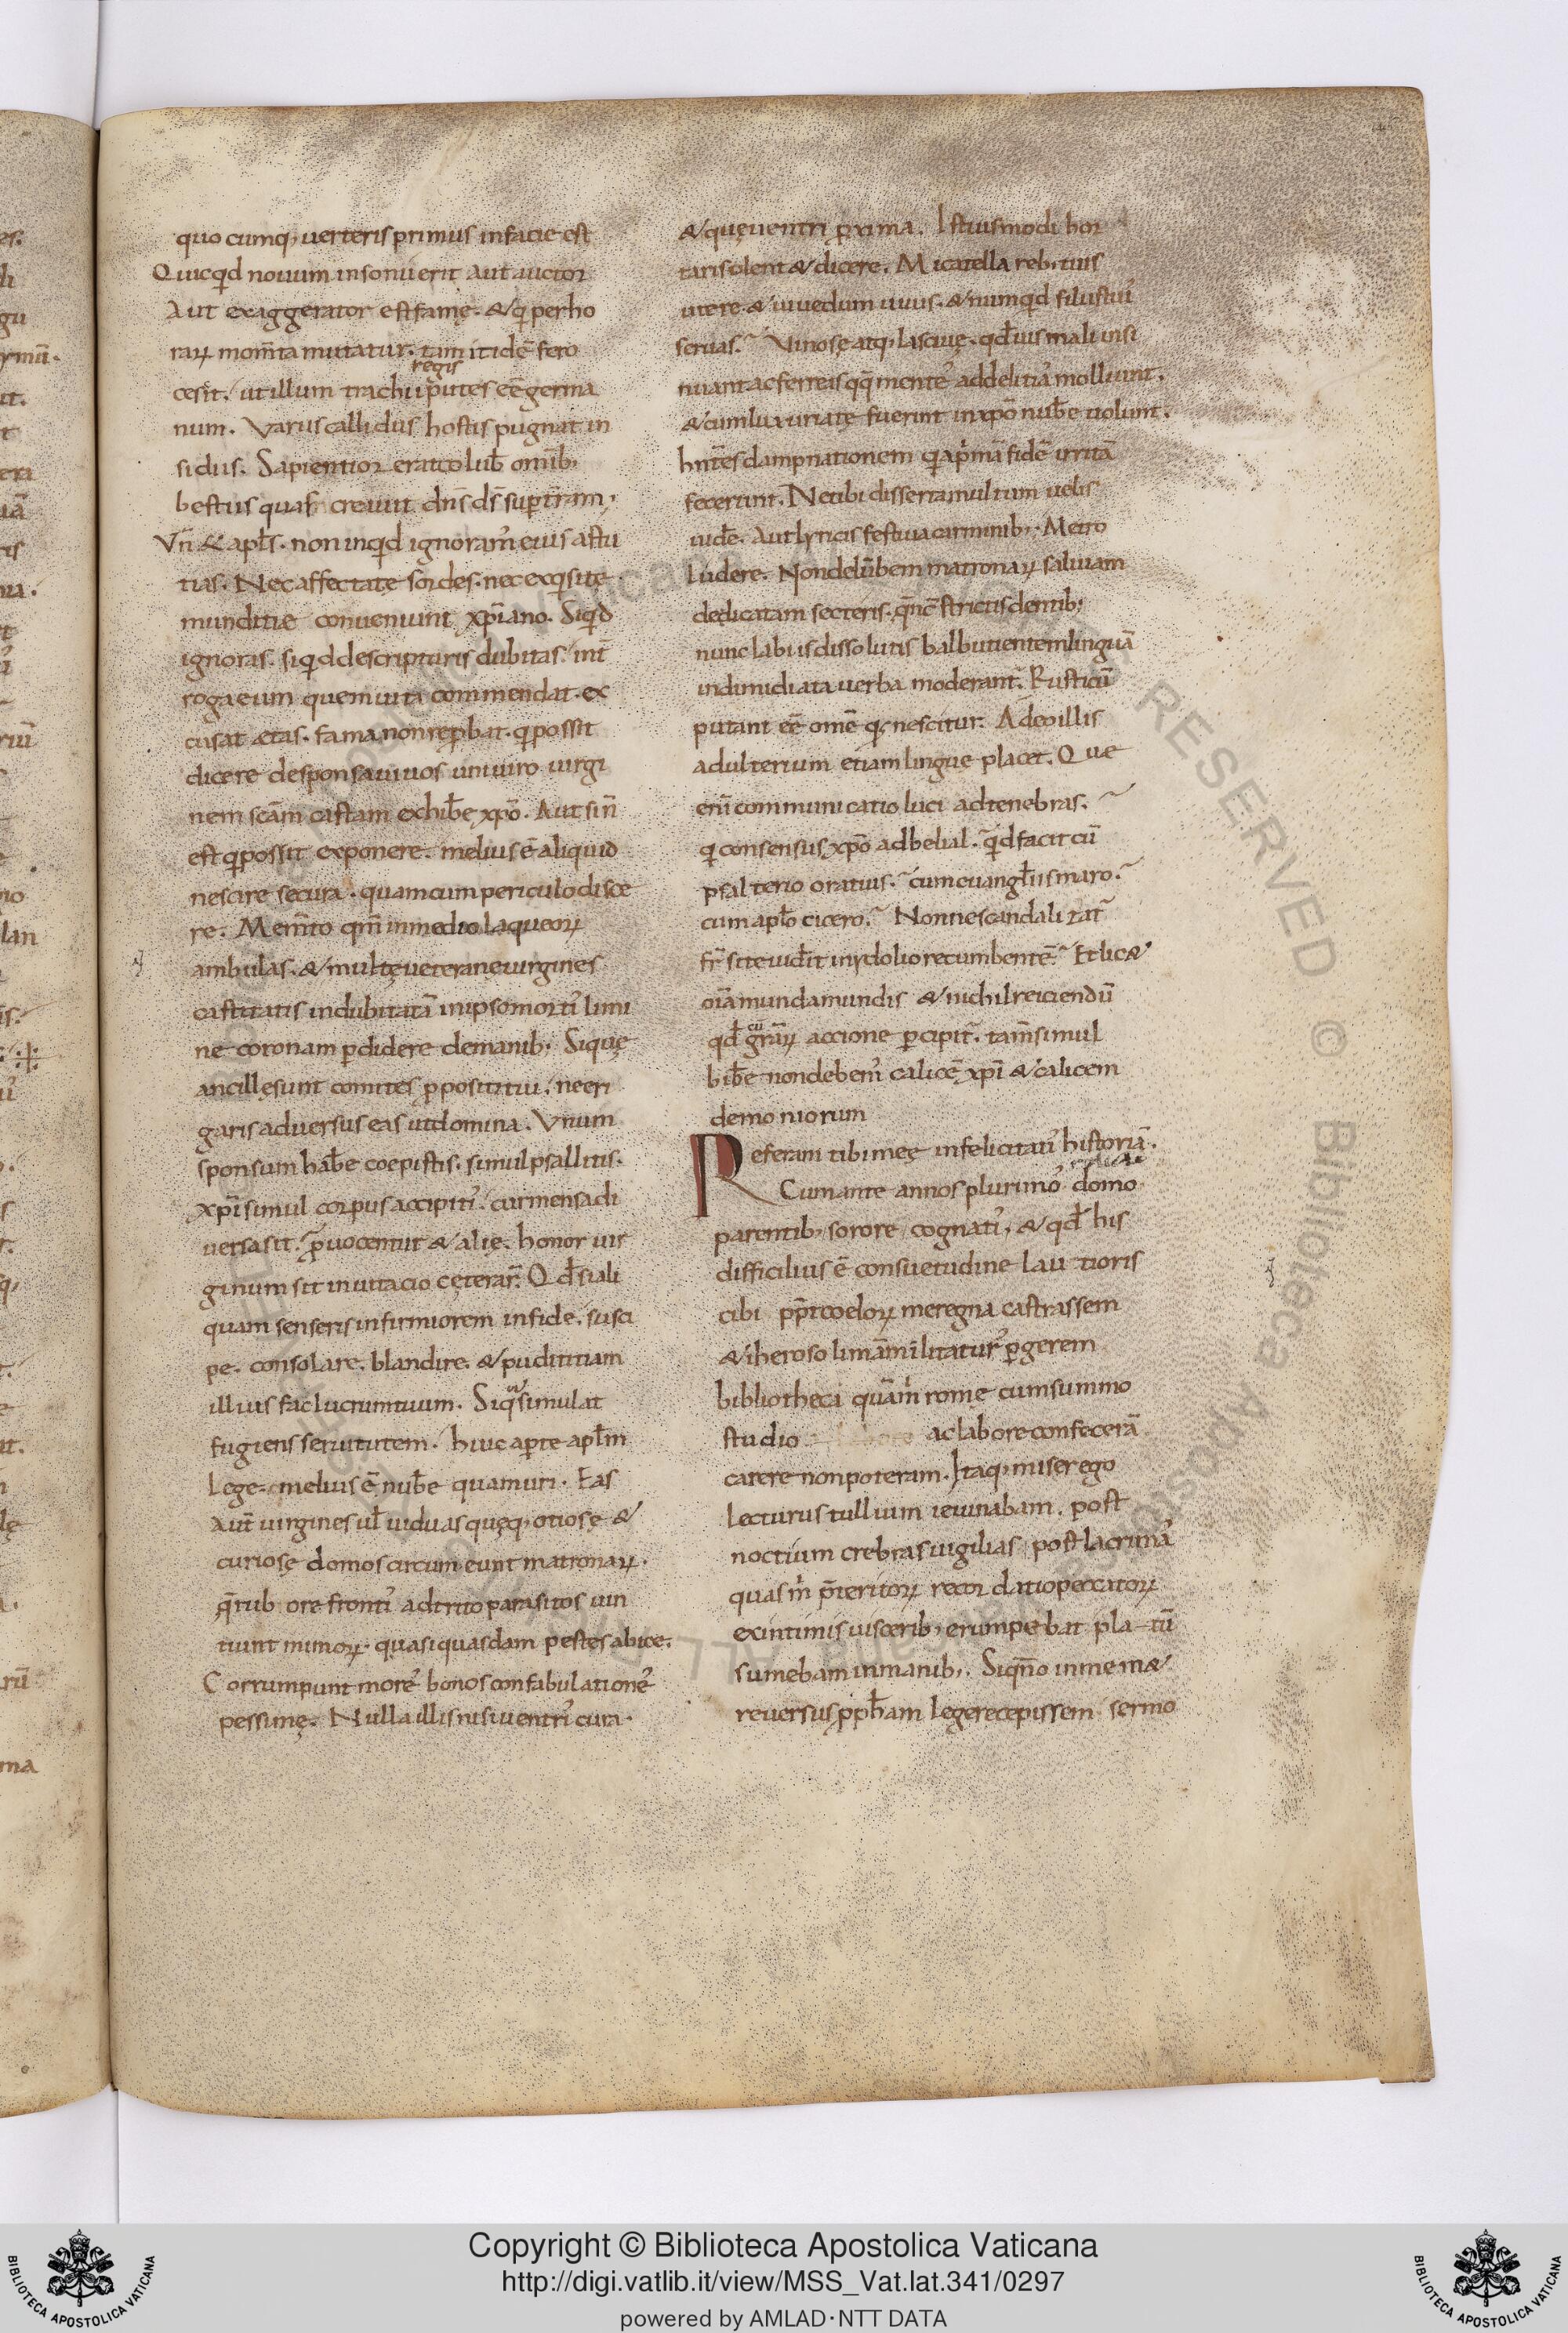 quo cumq; uerteris primus infacie est
Quicqd nouum insonuerit aut auctor
Aut exaggerator est famę. & q per ho
raꝝ mom̄ta mutatur. tam itidē fero
regis
cesit. ut illum trachii putes eē germa
num. Varus callidus hostis pugnat in
sidiis. Sapientior erat colub̄ omīb;
bestiis quas creauit dn̄s ds̄ sup t̄ram.
Vn̄ & apl̄s. non inqd ignoram᾽ eius astu
tias. Nec affectatę sordes. nec exqsitę
munditiæ conueniunt xp̄iano. Siqd
ignoras. siqd descripturis dubitas. int̄
roga eum quem uita commendat. ex
cusat ætas. fama non repbat. q possit
dicere desponsaui uos uni uiro uirgi
nem scām castam exhib̄e xp̄o. Aut si n̄
est q possit exponere. melius ē aliquid
nescire secura. quam cum periculo disce
re. Mem̄to qm̄ in medio laqueoꝝ
ambulas. & multę ueteranę uirgines
castitatis indubitatā in ipso mortī limi
ne coronam pdidere de manib;. Si quę
ancillę sunt comites ppositi tui. ne eri
garis aduersus eas ut domina. Vnum
sponsum hab̄e coepistis. simul psallitis.
xp̄i simul corpus accipitī. cur mensa di
uersa sit. puocentur & alię. honor uir
ginum sit inuitacio cęterar̄. Qd̄ si ali
quam senseris infirmiorem in fide. susci
pe. consolare. blandire. & pudititiam
illius fac lucrum tuum. Siq simulat
fugiens seruitutem. huic apte apl̄m
lege. melius ē nub̄e quam uri. Eas
aut̄ uirgines ul̄ uiduas quęq; otiosę &
curiosę domos circumeunt matronaꝝ.
q̄ rubore frontī adtrito parasitos uin
tiunt mimoꝝ. quasi quasdam pestes abice.
Corrumpunt morē bonos confabulationē
pessimę. Nulla illis nisi uentrī cura.
& quę uentri pxima. Istiusmodi hor
tari solent & dicere. Mi catella reb; tuis
utere. & uiue dum uiuis. & numqd filiis tuī
seruas. Vinosę atq; lasciuę. qd̄uis mali insi
nuant ac ferreis qq̄ mentē ad delitiā molliunt.
& cum luxuriatę fuerint in xp̄o nub̄e uolunt.
hn̄tes dampnationem q a pmā fidē irritā
fecerunt. Nec tibi disserta multum uelis
uid̄e. Aut lyricis festiua carminib;. Metro
ludere. Non delūbem matronaꝝ saliuam
dedicatam secteris. q̄ nc̄ strictis dentib;
nunc labiis dissolutis balbutientem linguā
in dimidiata uerba moderant̄. Rusticū
putant eē omē q nescitur. Adeo illis
adulterium etiam linguę placet. Quę
enī communicatio luci ad tenebras.
q consensus xp̄o ad belial. qd facit cū
psalterio oratius. cum euangl̄iis maro.
cum aplo cicero. Nonne scandalizat̄
fr̄ si te uid̄it in ydolio recumbentē. Et lic&
oīa munda mundis & nichil reiciendū
cū
qd̄ grar̄ꝝ accione pcipit̄. tam̄ simul
bib̄e non debem᾽ calicē xp̄i & calicem
demoniorum
Referam tibi meę infelicitatī historiā.
Cum ante annos plurimō domo
parentib; sorore cognatī, & qd̄ his
difficilius ē consuetudine lautioris
cibi pp̄t coeloꝝ me regna castrassem
& iherosolimā militatur᾽ pgerem
bibliotheci quā m̄ rome cum summo
studio ac labore confecerā
carere non poteram. Itaq; miser ego
lecturus tullium ieiunabam. post
noctium crebras uigilias post lacrimā
quas m̄ p̄teritoꝝ recordatio peccatoꝝ
ex intimis uisceribus erumpebat platū
sumebam in manib;. Siqn̄o in me m&
reuersus pph̄am legere cepissem sermo
Copyright © Biblioteca Apostolica Vaticana
http://digi.vatlib.it/view/MSS_Vat.lat.341/0297
powered by AMLAD · NTT DATA